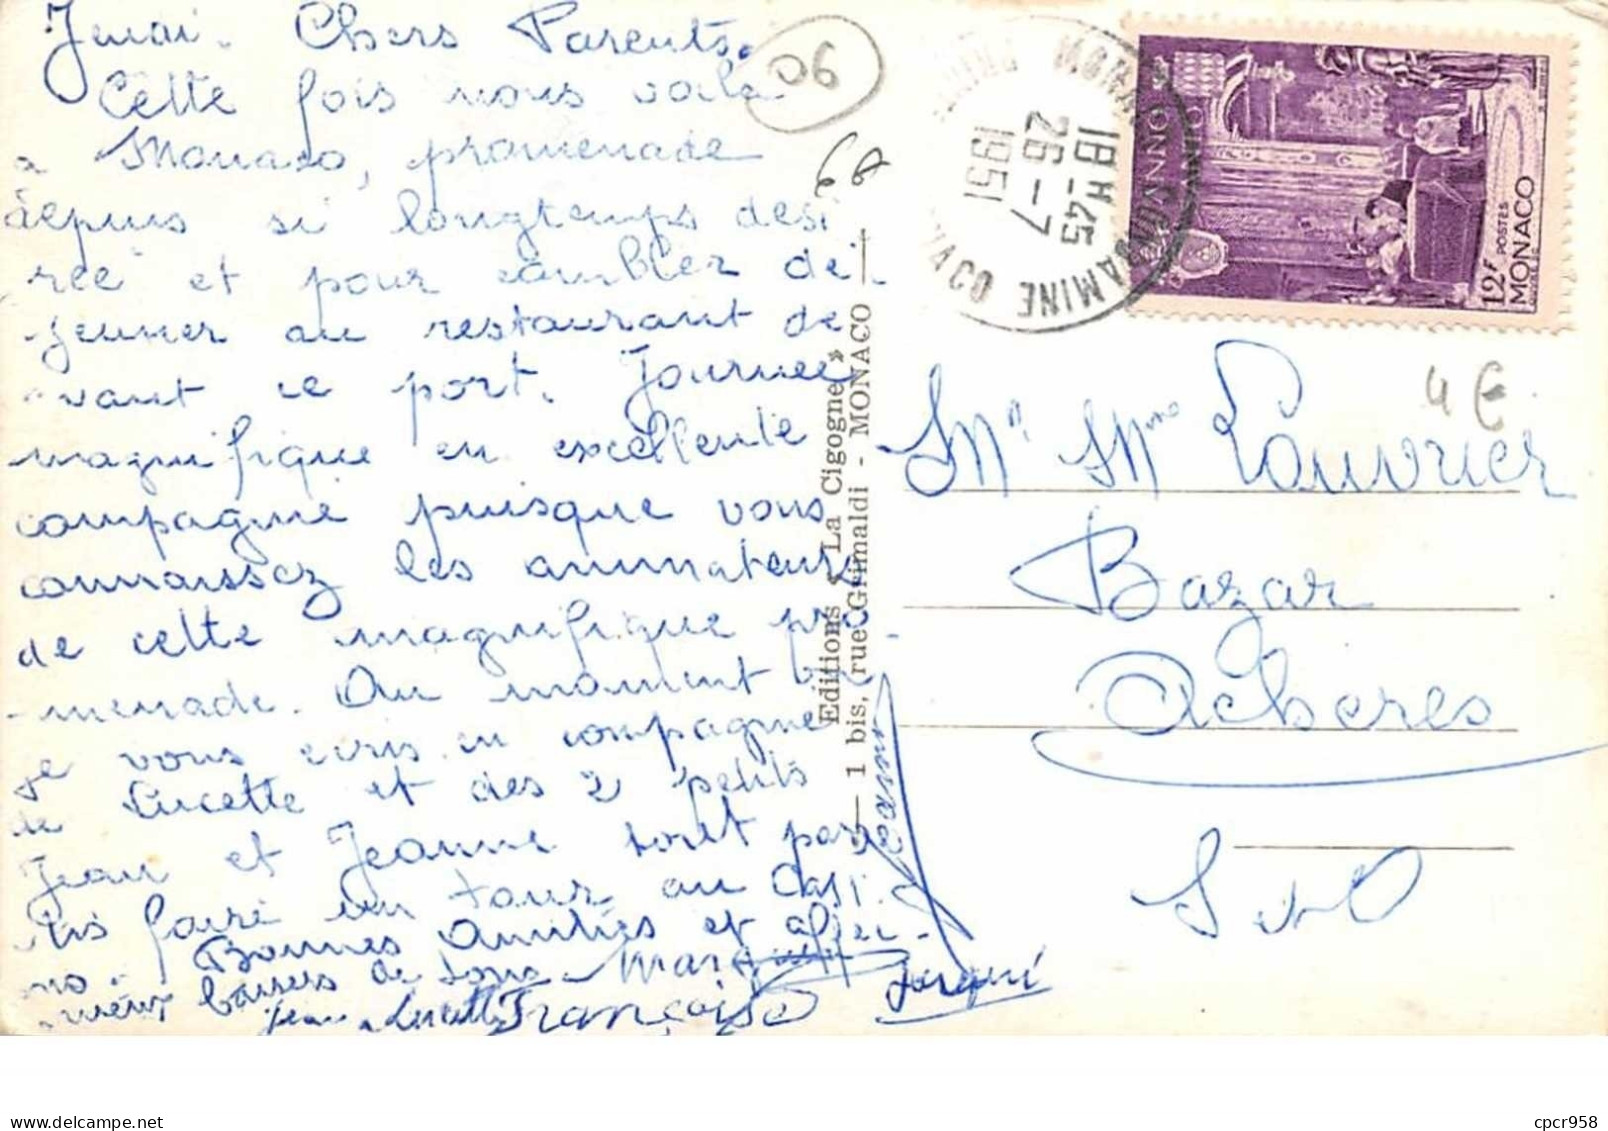 Jeudi. Chers Parents.
Cette fois nous voila
a Monaco, promenade
depuis si longtemps dési
rée et pour combler dé-
jeuner au restaurant de
vant le port. Journée
magnifique en excellente
compagnie puisque vous
connaissez les animateurs
de cette magnifique pro
-menade. Au moment où
je vous écris en compagnie
de Lucette et des 2 petits
Jean et Jeanne sont par
tis faire un tour au Casi
no. Bonnes Amitiés et affec-
tueux baisers de tous
Jean Lucette Françoise
Jeanne
06
18H45
26-7
1951
MONACO CONDAMINE
ANNO
12F
POSTES
MONACO
Editions « La Cigogne »
1 bis, rue Grimaldi - MONACO
4€
Mr Mme Louvrier
Bazar
Acheres
S et O
cpcr958